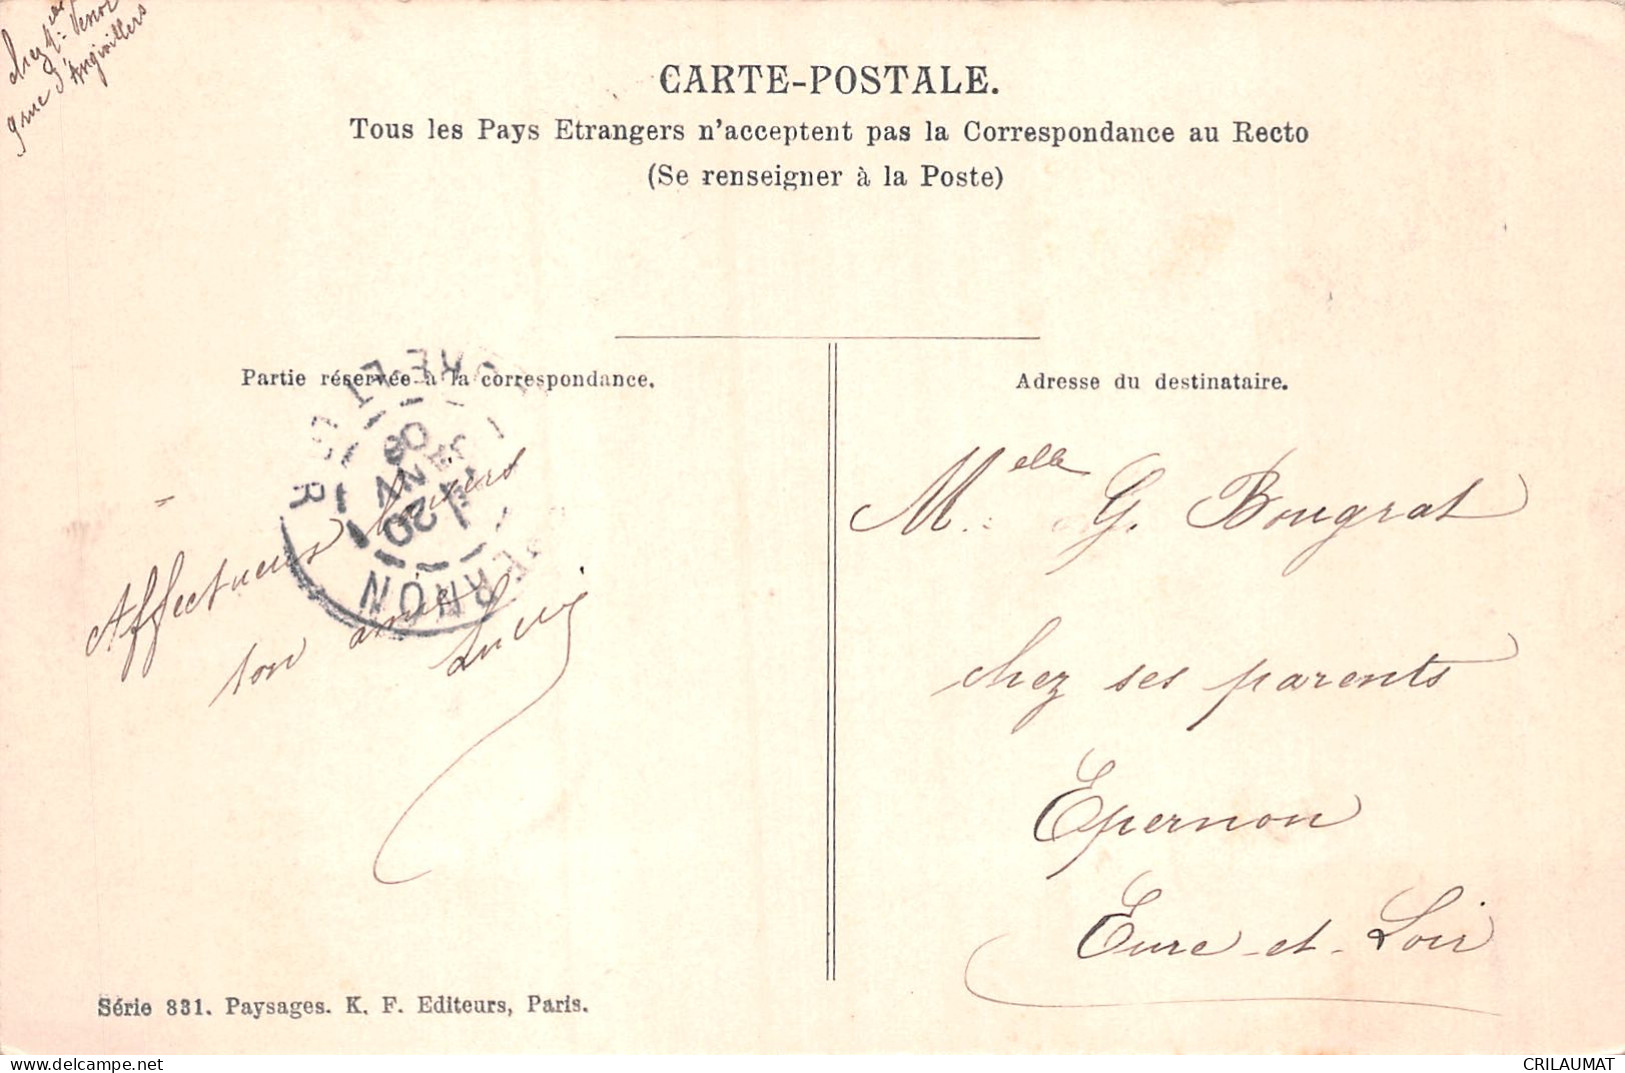 chez
9 rue d'Angiviller
CARTE-POSTALE.
Tous les Pays Etrangers n'acceptent pas la Correspondance au Recto
(Se renseigner à la Poste)
Partie réservée à la correspondance.
Adresse du destinataire.
Affectueux baisers
ton amie
Lucie
EPERNON
20
JANV
08
EURE-ET-LOIR
Melle G. Bougrat
chez ses parents
Epernon
Eure-et-Loir
Série 831. Paysages. K. F. Editeurs, Paris.
CRILAUMAT
delcampe.net